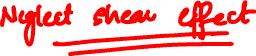 Neglect shear effect